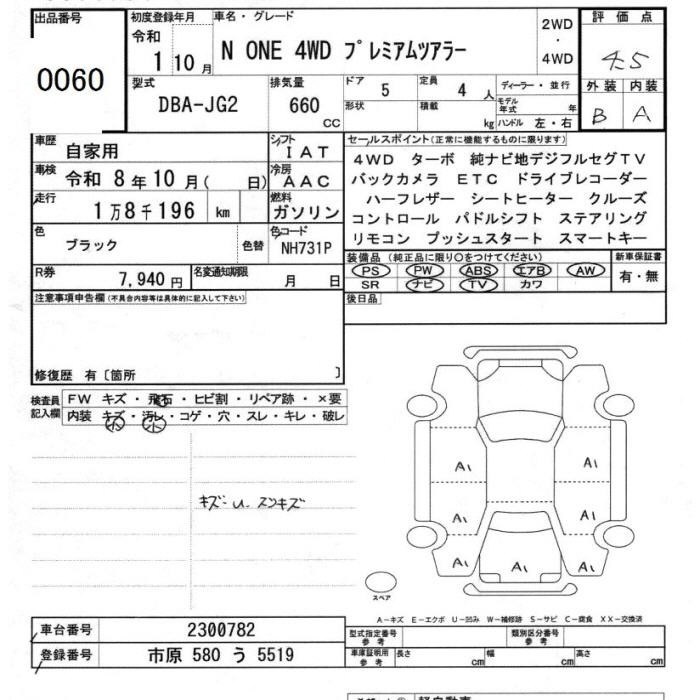 出品番号
0060
初度登録年月
令和
1 10 月
車名・グレード
N ONE 4WD プレミアムツアラー
2WD
・
4WD
評価点
4.5
外装 内装
B A
型式
DBA-JG2
排気量
660
CC
ドア
5
定員
4 人
形状
積載
kg
ディーラー・並行
モデル年式 年
ハンドル 左・右
車歴
自家用
シフト
I AT
車検 令和 8年10月( 日)
冷房
AAC
走行
1万8千196 km
燃料
ガソリン
色
ブラック
色替
色コード
NH731P
R券
7,940 円
名変通知期限
月 日
セールスポイント(正常に機能するものに限ります)
4WD ターボ 純ナビ地デジフルセグTV
バックカメラ ETC ドライブレコーダー
ハーフレザー シートヒーター クルーズ
コントロール パドルシフト ステアリング
リモコン プッシュスタート スマートキー
装備品(純正品に限り○をつけてください)
PS PW ABS エアB AW
SR ナビ TV カワ
新車保証書
有・無
後日品
注意事項申告欄(不具合内容等は具体的に記入して下さい)
修復歴 有〔箇所 〕
検査員
記入欄
FW キズ・飛石・ヒビ割・リペア跡・×要
内装 キズ・汚レ・コゲ・穴・スレ・キレ・破レ
小 小
キズ・U・スリキズ
A1 A1
A1 A1
A1 A A1
スペア
A-キズ E-エクボ U-凹み W-補修跡 S-サビ C-腐食 XX-交換済
車台番号
2300782
登録番号
市原 580 う 5519
型式指定番号
参考
類別区分番号
参考
車庫証明用
参考
長さ cm 幅 cm 高さ cm
軽自動車